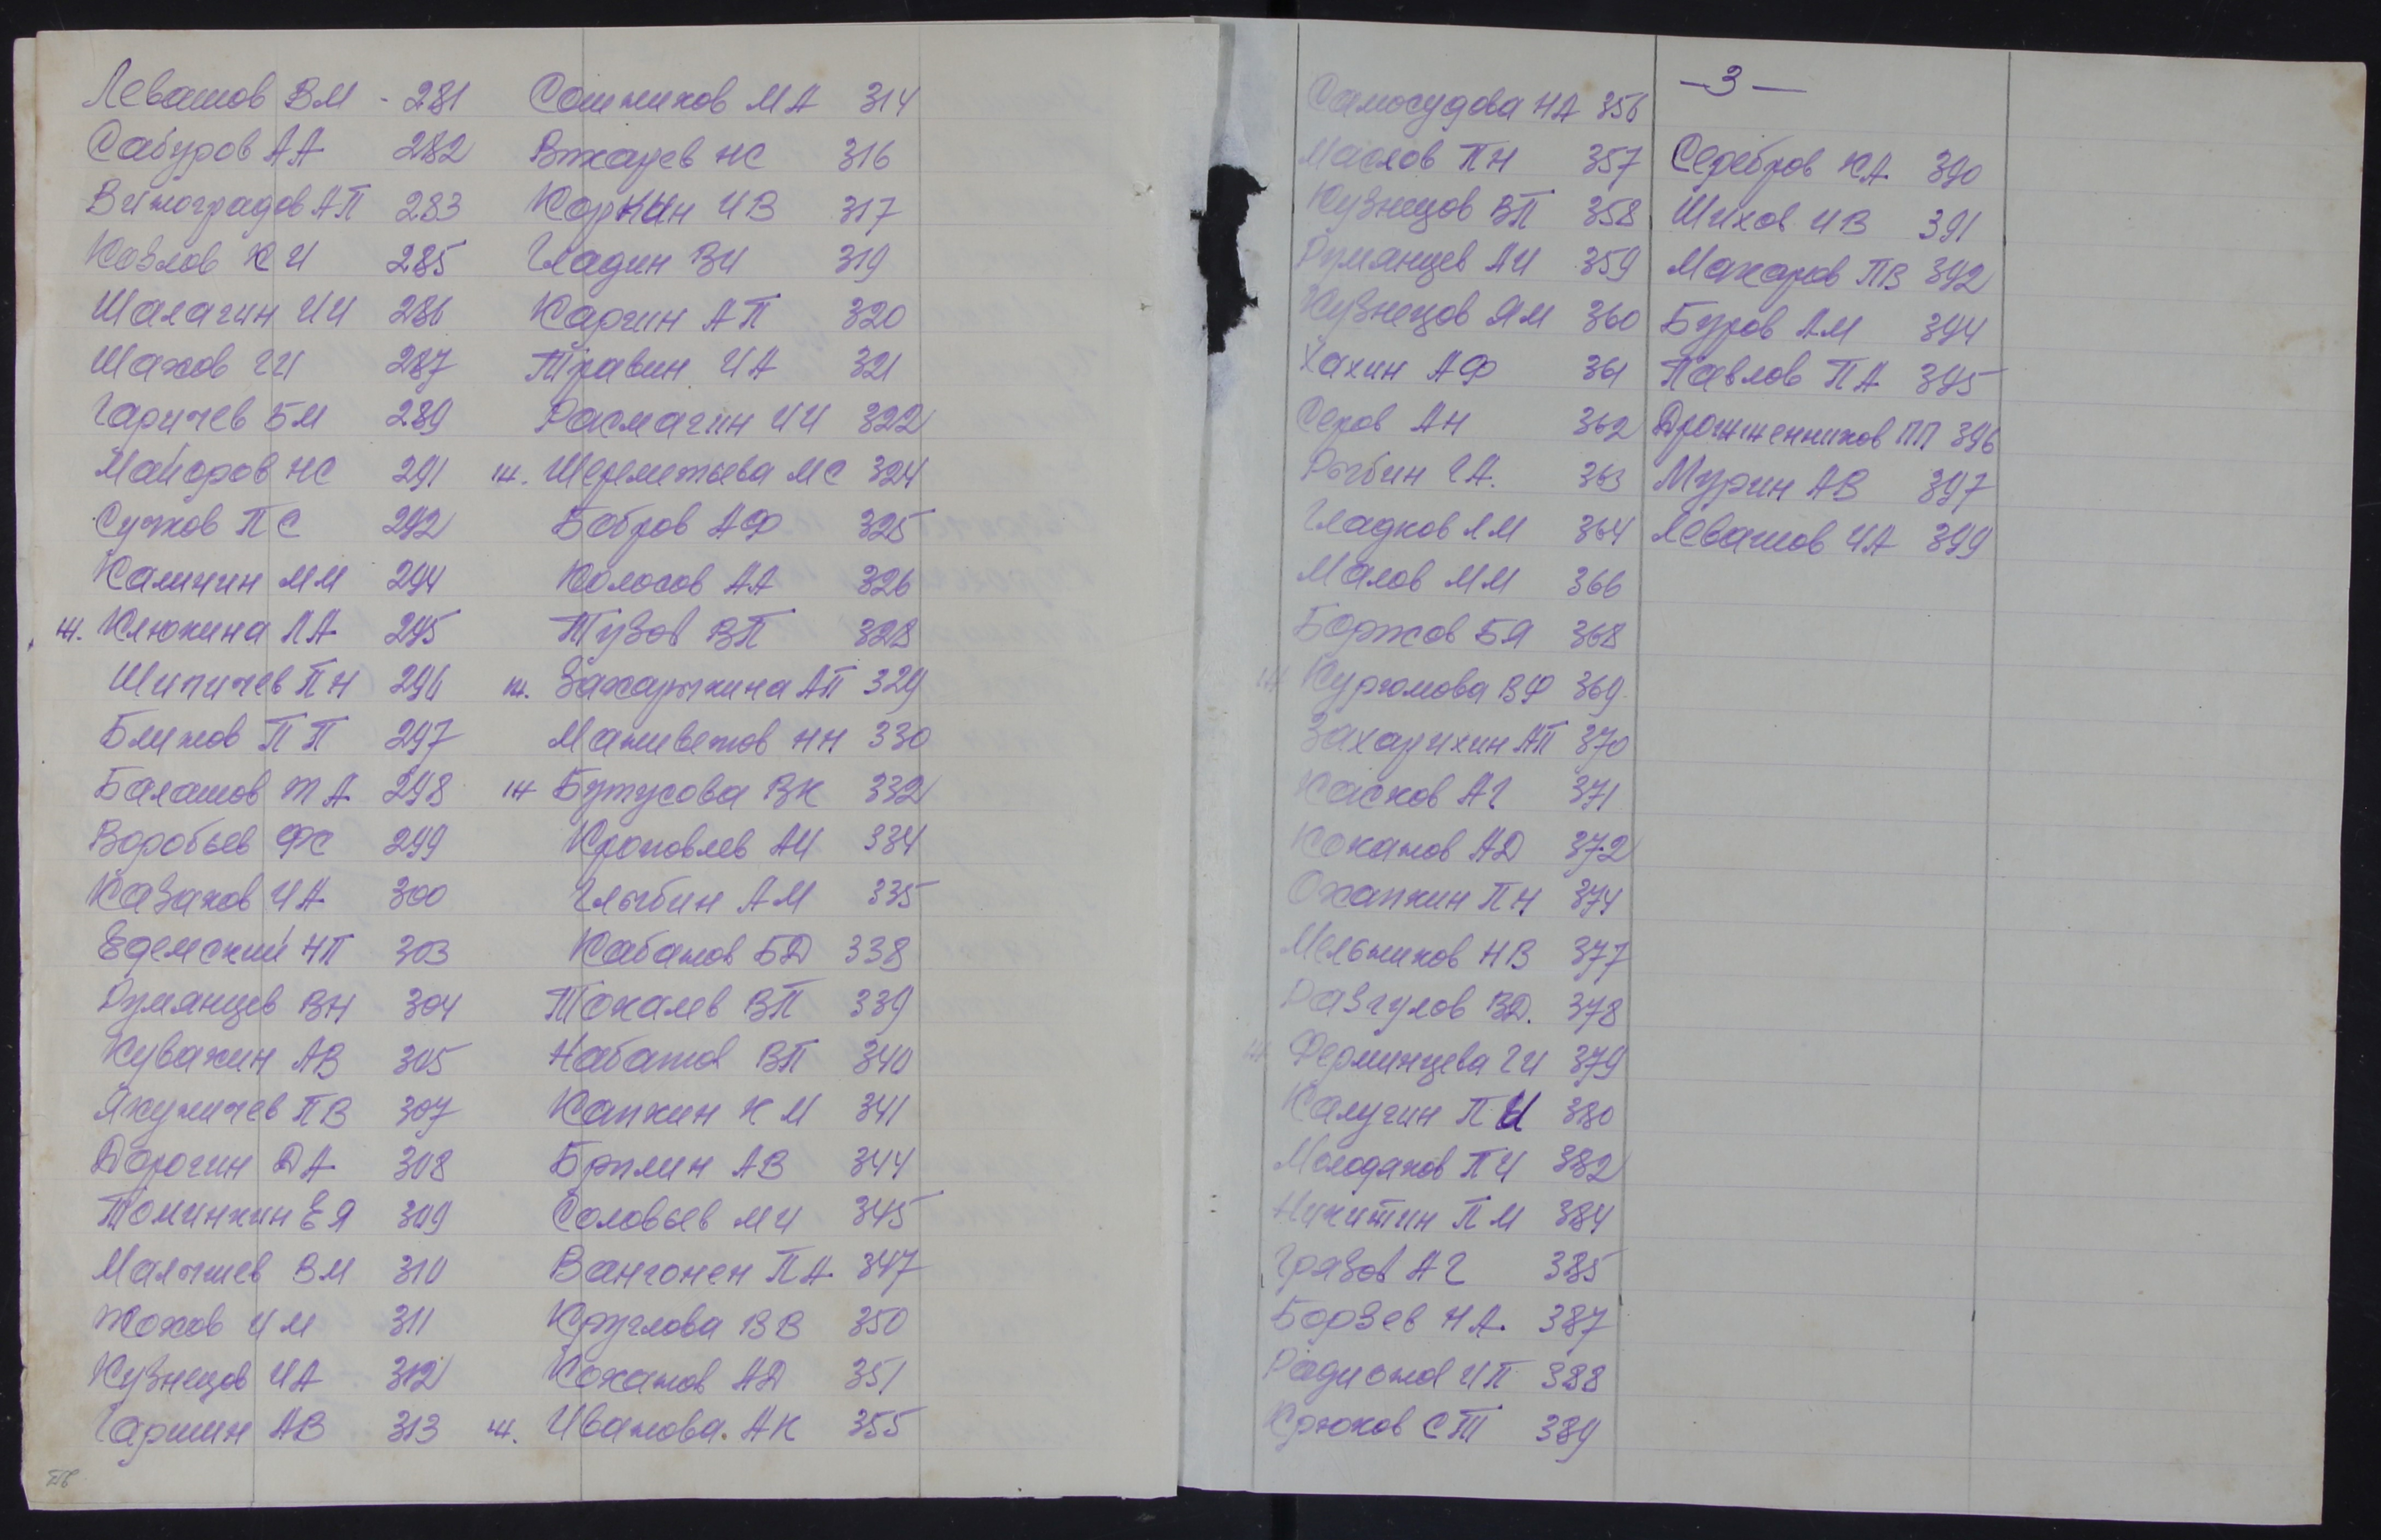 Левашов ВМ - 281
Сабуров АА 282
Виноградов АП 283
Козлов КИ 285
Шалагин ИИ 286
Шахов ГИ 287
Гаричев БМ 289
Майоров НС 291
Сучков ПС 292
Калинин ММ 294
ж. Клюкина ЛА 295
Шипичев ПН 296
Блинов ПП 297
Балашов ТА 298
Воробьев ФС 299
Казаков ИА 300
Едемский НП 303
Румянцев ВН 304
Кувакин АВ 305
Якуничев ПВ 307
Дорогин ДА 308
Томинкин ЕЯ 309
Малышев ВМ 310
Жохов ИМ 311
Кузнецов ИА 312
Гаршин АВ 313
Сошников МА 314
Вжарев НС 316
Коркин ИВ 317
Гладин ВИ 319
Каргин АП 320
Травин ИА 321
Расмагин ИИ 322
ж. Шереметьева МС 324
Бобров АФ 325
Колосов АА 326
Тузов ВП 328
ж. Захарычина АП 329
Маниветов НН 330
ж Бутусова ВК 332
Кроповлев АИ 334
Глыбин АМ 335
Кабанов БД 338
Токалев ВП 339
Набатов ВП 340
Капкин КМ 341
Брилин АВ 344
Соловьев МИ 345
Вангонен ПА 347
Круглова ВВ 350
Коханов АД 351
ж. Иванова АК 355
Самосудова НА 356
Маслов ПН 357
Кузнецов ВП 358
Румянцев АИ 359
Кузнецов ЯМ 360
Хахин АФ 361
Серов АН 362
Рыбин ГА. 363
Гладков ЛМ 364
Малов ММ 366
Боржов БЯ 368
ж Курюмова ВФ 369
Захарихин АП 370
Касков АГ 371
Коканов АД 372
Охапкин ПН 374
Мельников НВ 377
Разгулов ВД. 378
ж Ферминцева ГИ 379
Калугин ПИ 380
Молодяков ПИ 382
Никитин ПМ 384
Грязов АГ 385
Борзев НА 387
Радионов ИП 388
Крюков СТ 389
— 3 —
Серебров КА 390
Шихов ИВ 391
Макаров ПВ 392
Буров АМ 394
Павлов ПА 395
Дрожженников ПП 396
Мурин АВ 397
Левашов ИА 399